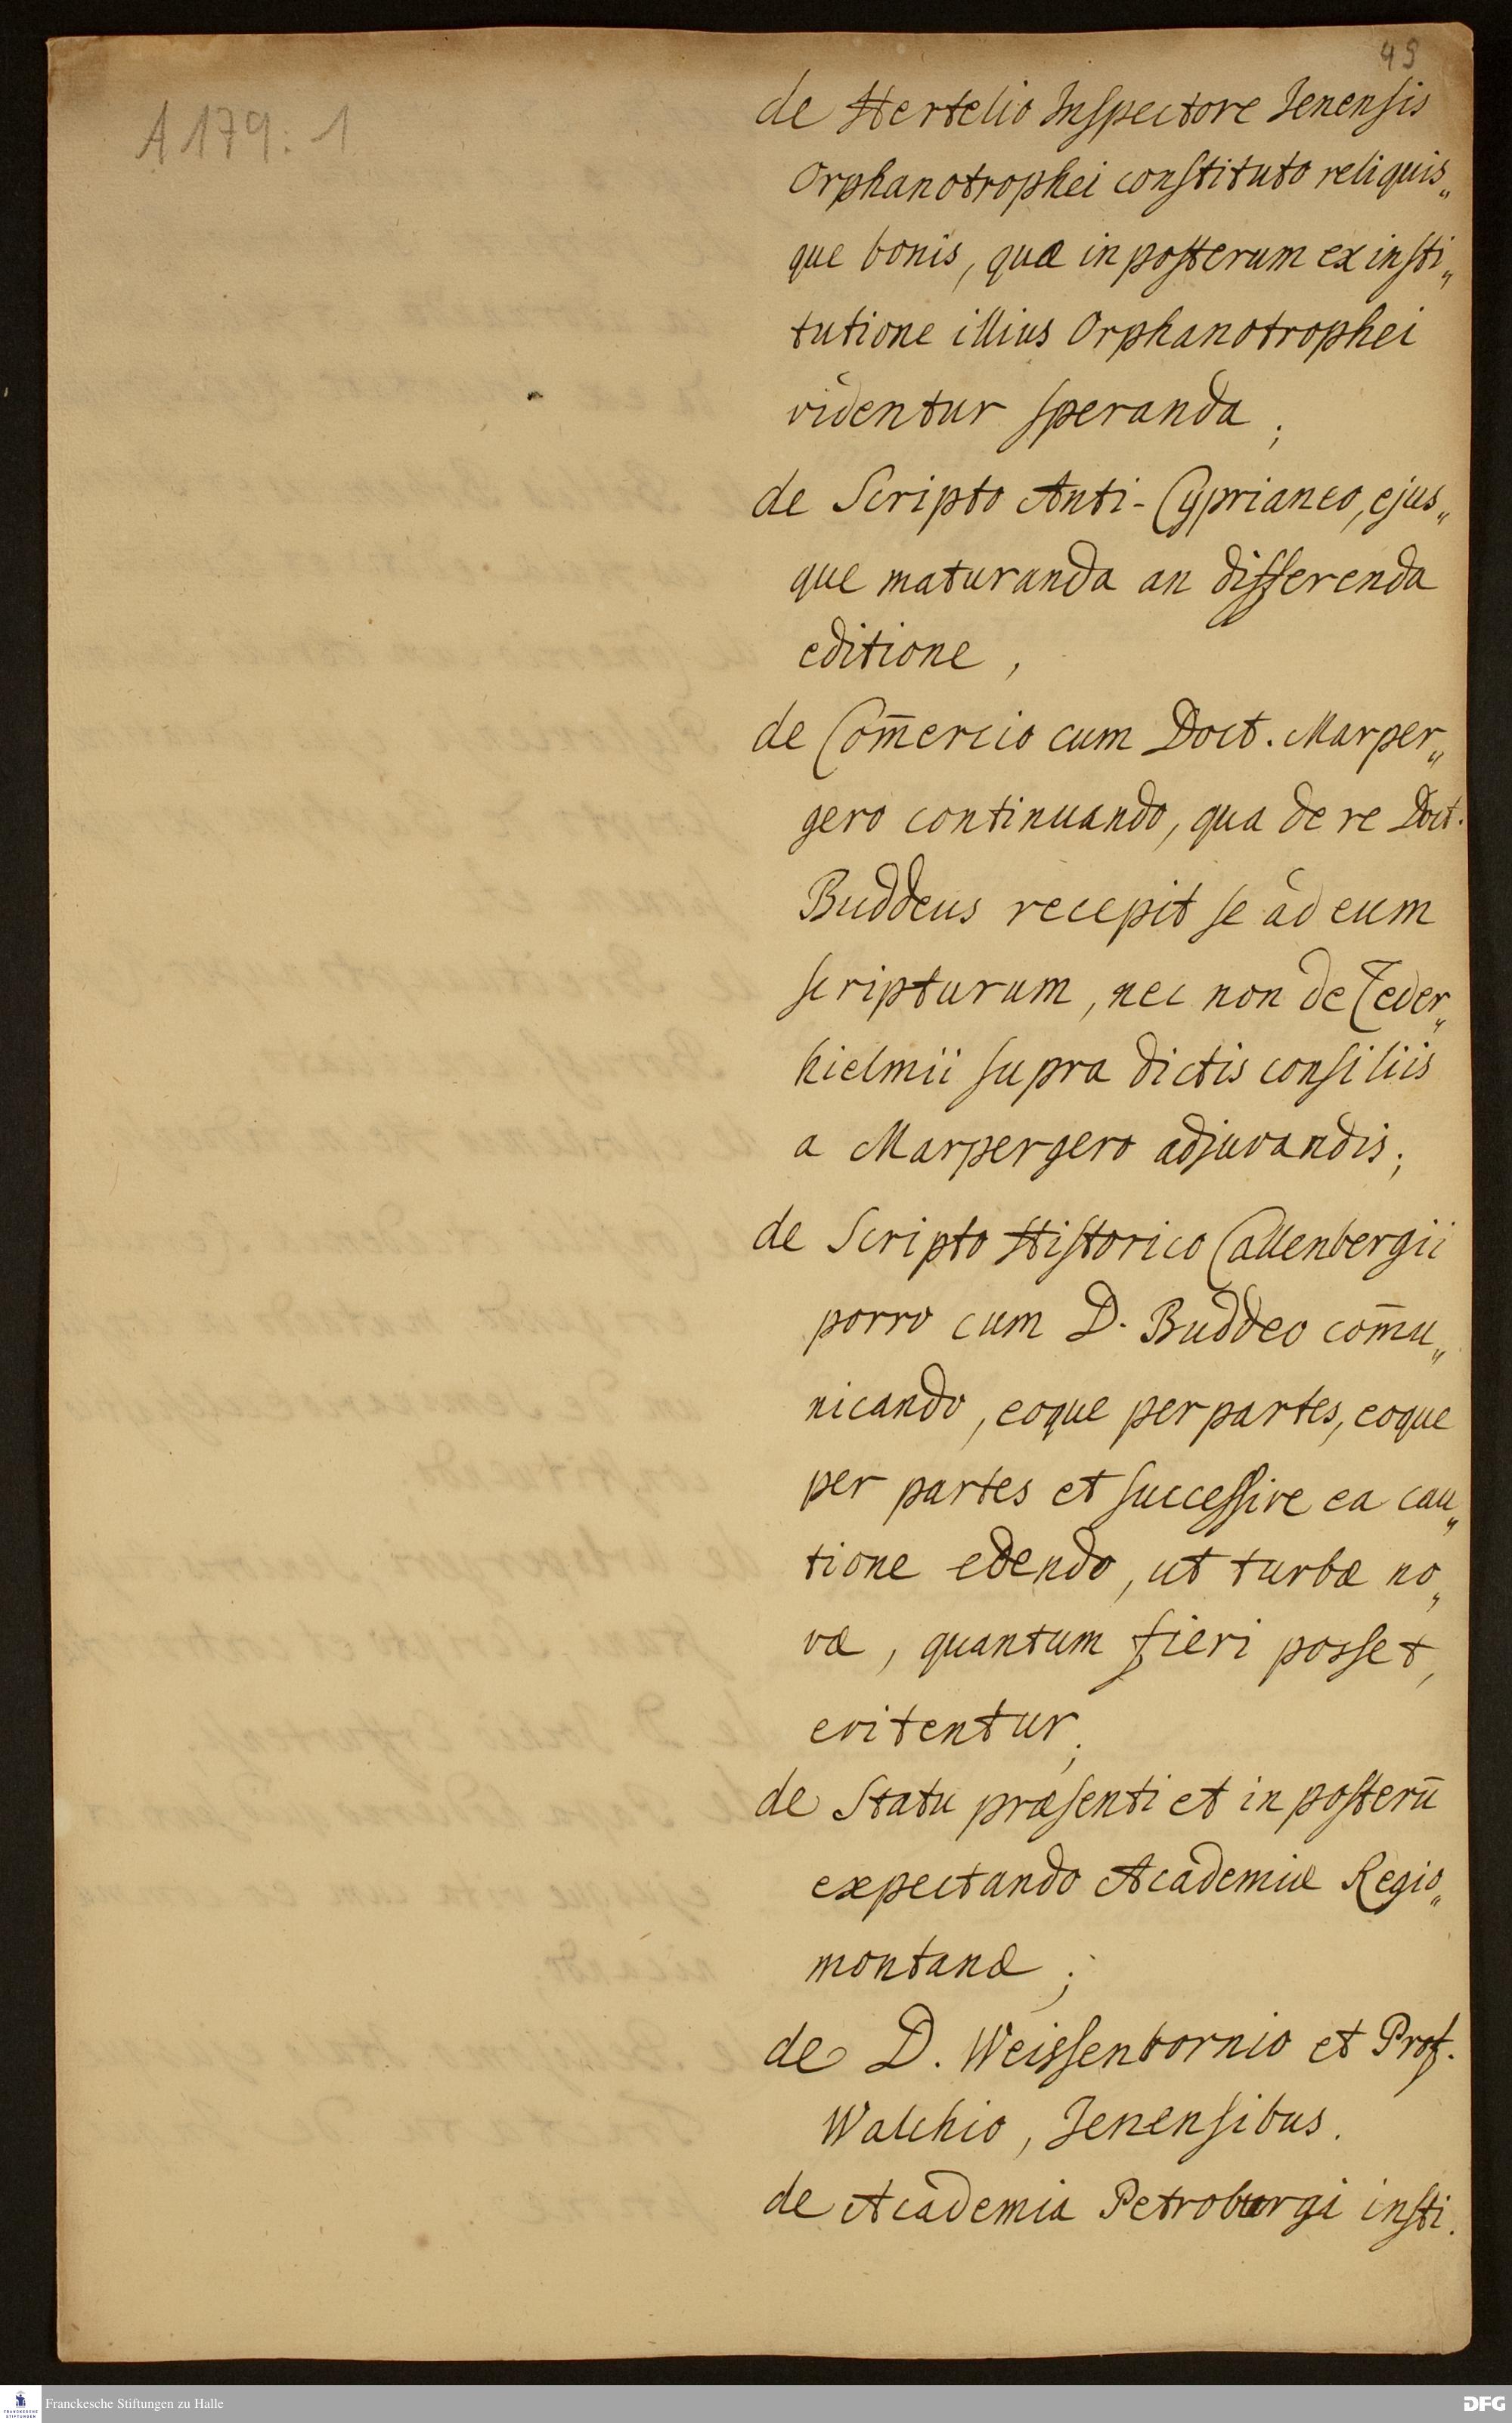 49
A 179:1
de Hertelio Inspectore Jenensis
Orphanotrophei constituto reliquis„
que bonis, quæ in posterum ex insti„
tutione illius Orphanotrophei
videntur speranda;
de Scripto Anti-Cyprianeo, ejus„
que maturanda an differenda
editione,
de Com̄ercio cum Doct. Marper„
gero continuando, qua de re Doct.
Buddeus recepit se ad eum
scripturum, nec non de Ceder„
hielmii supra dictis consiliis
a Marpergero adjuvandis;
de Scripto Historico Callenbergii
porro cum D. Buddeo com̄u„
nicando, eoque per partes, eoque
per partes et successive ea cau„
tione edendo, ut turbæ no„
væ, quantum fieri posset,
evitentur;
de Statu præsenti et in posterū
expectando Academiæ Regio„
montanæ;
de D. Weissenbornio et Prof.
Walchio, Jenensibus.
de Academia Petroburgi insti„
Franckesche Stiftungen zu Halle
DFG